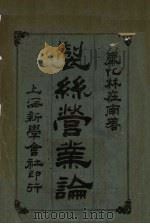 奉化林在南著
製絲營業論
上海新學會社印行